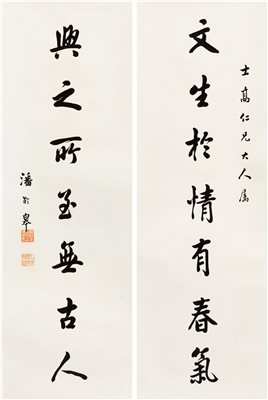 士高仁兄大人属
文生於情有春氣
興之所至無古人
潘龄皋